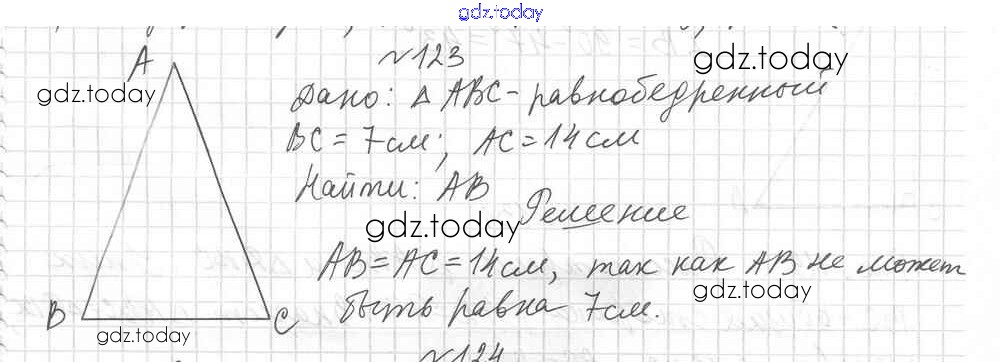 gdz.today
№123
gdz.today
A
gdz.today
Дано: Δ ABC - равнобедренный
BC = 7см; AC = 14см
Найти: AB
Решение
gdz.today
AB = AC = 14см, так как AB не может
gdz.today
быть равна 7см.
B
C
gdz.today
№124